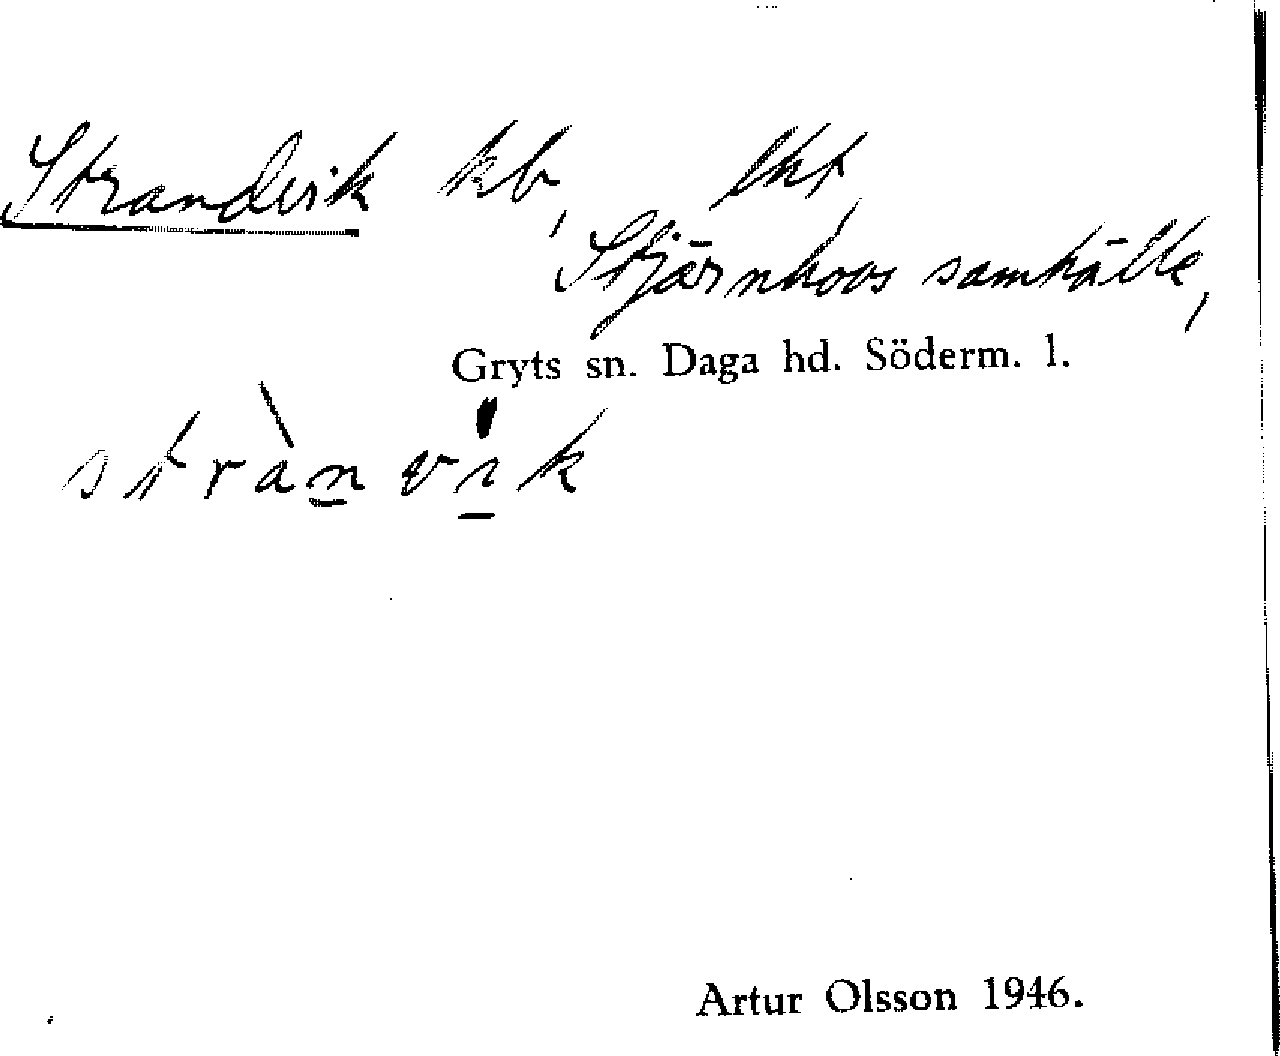 Strandvik kb, lht,
Stjärnhovs samhälle,
Gryts sn. Daga hd. Söderm. l.
strànvik
Artur Olsson 1946.